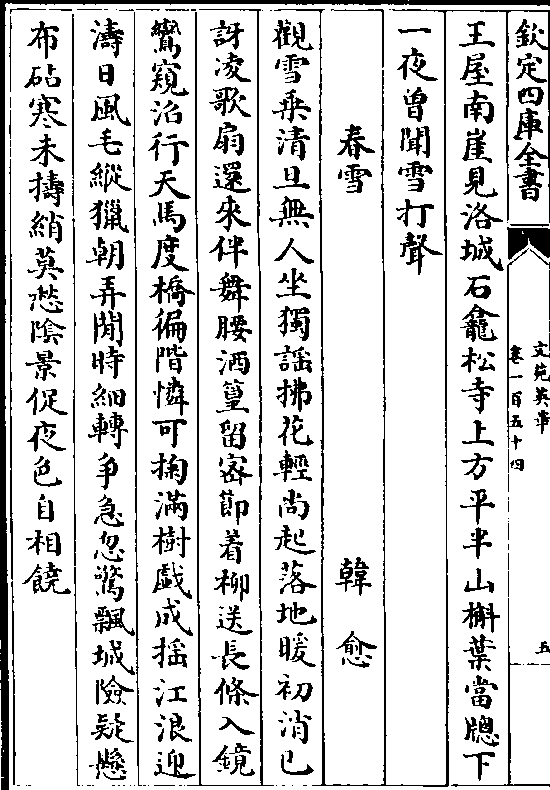 欽定四庫全書
文苑英華
卷一百五十四
五
王屋南崖見洛城石龕松寺上方平半山槲葉當牕下
一夜曾聞雪打聲
春雪
韓愈
觀雪乗清旦無人坐獨謡拂花輕尚起落地暖初消已
訝凌歌扇還來伴舞腰洒篁留宻節着柳送長條入鏡
鸞窺沼行天馬度橋徧階憐可掬滿樹戯成揺江浪迎
濤日風毛縱獵朝弄閒時細轉争急忽驚飄城險疑懸
布砧寒未擣綃莫愁隂景促夜色自相饒